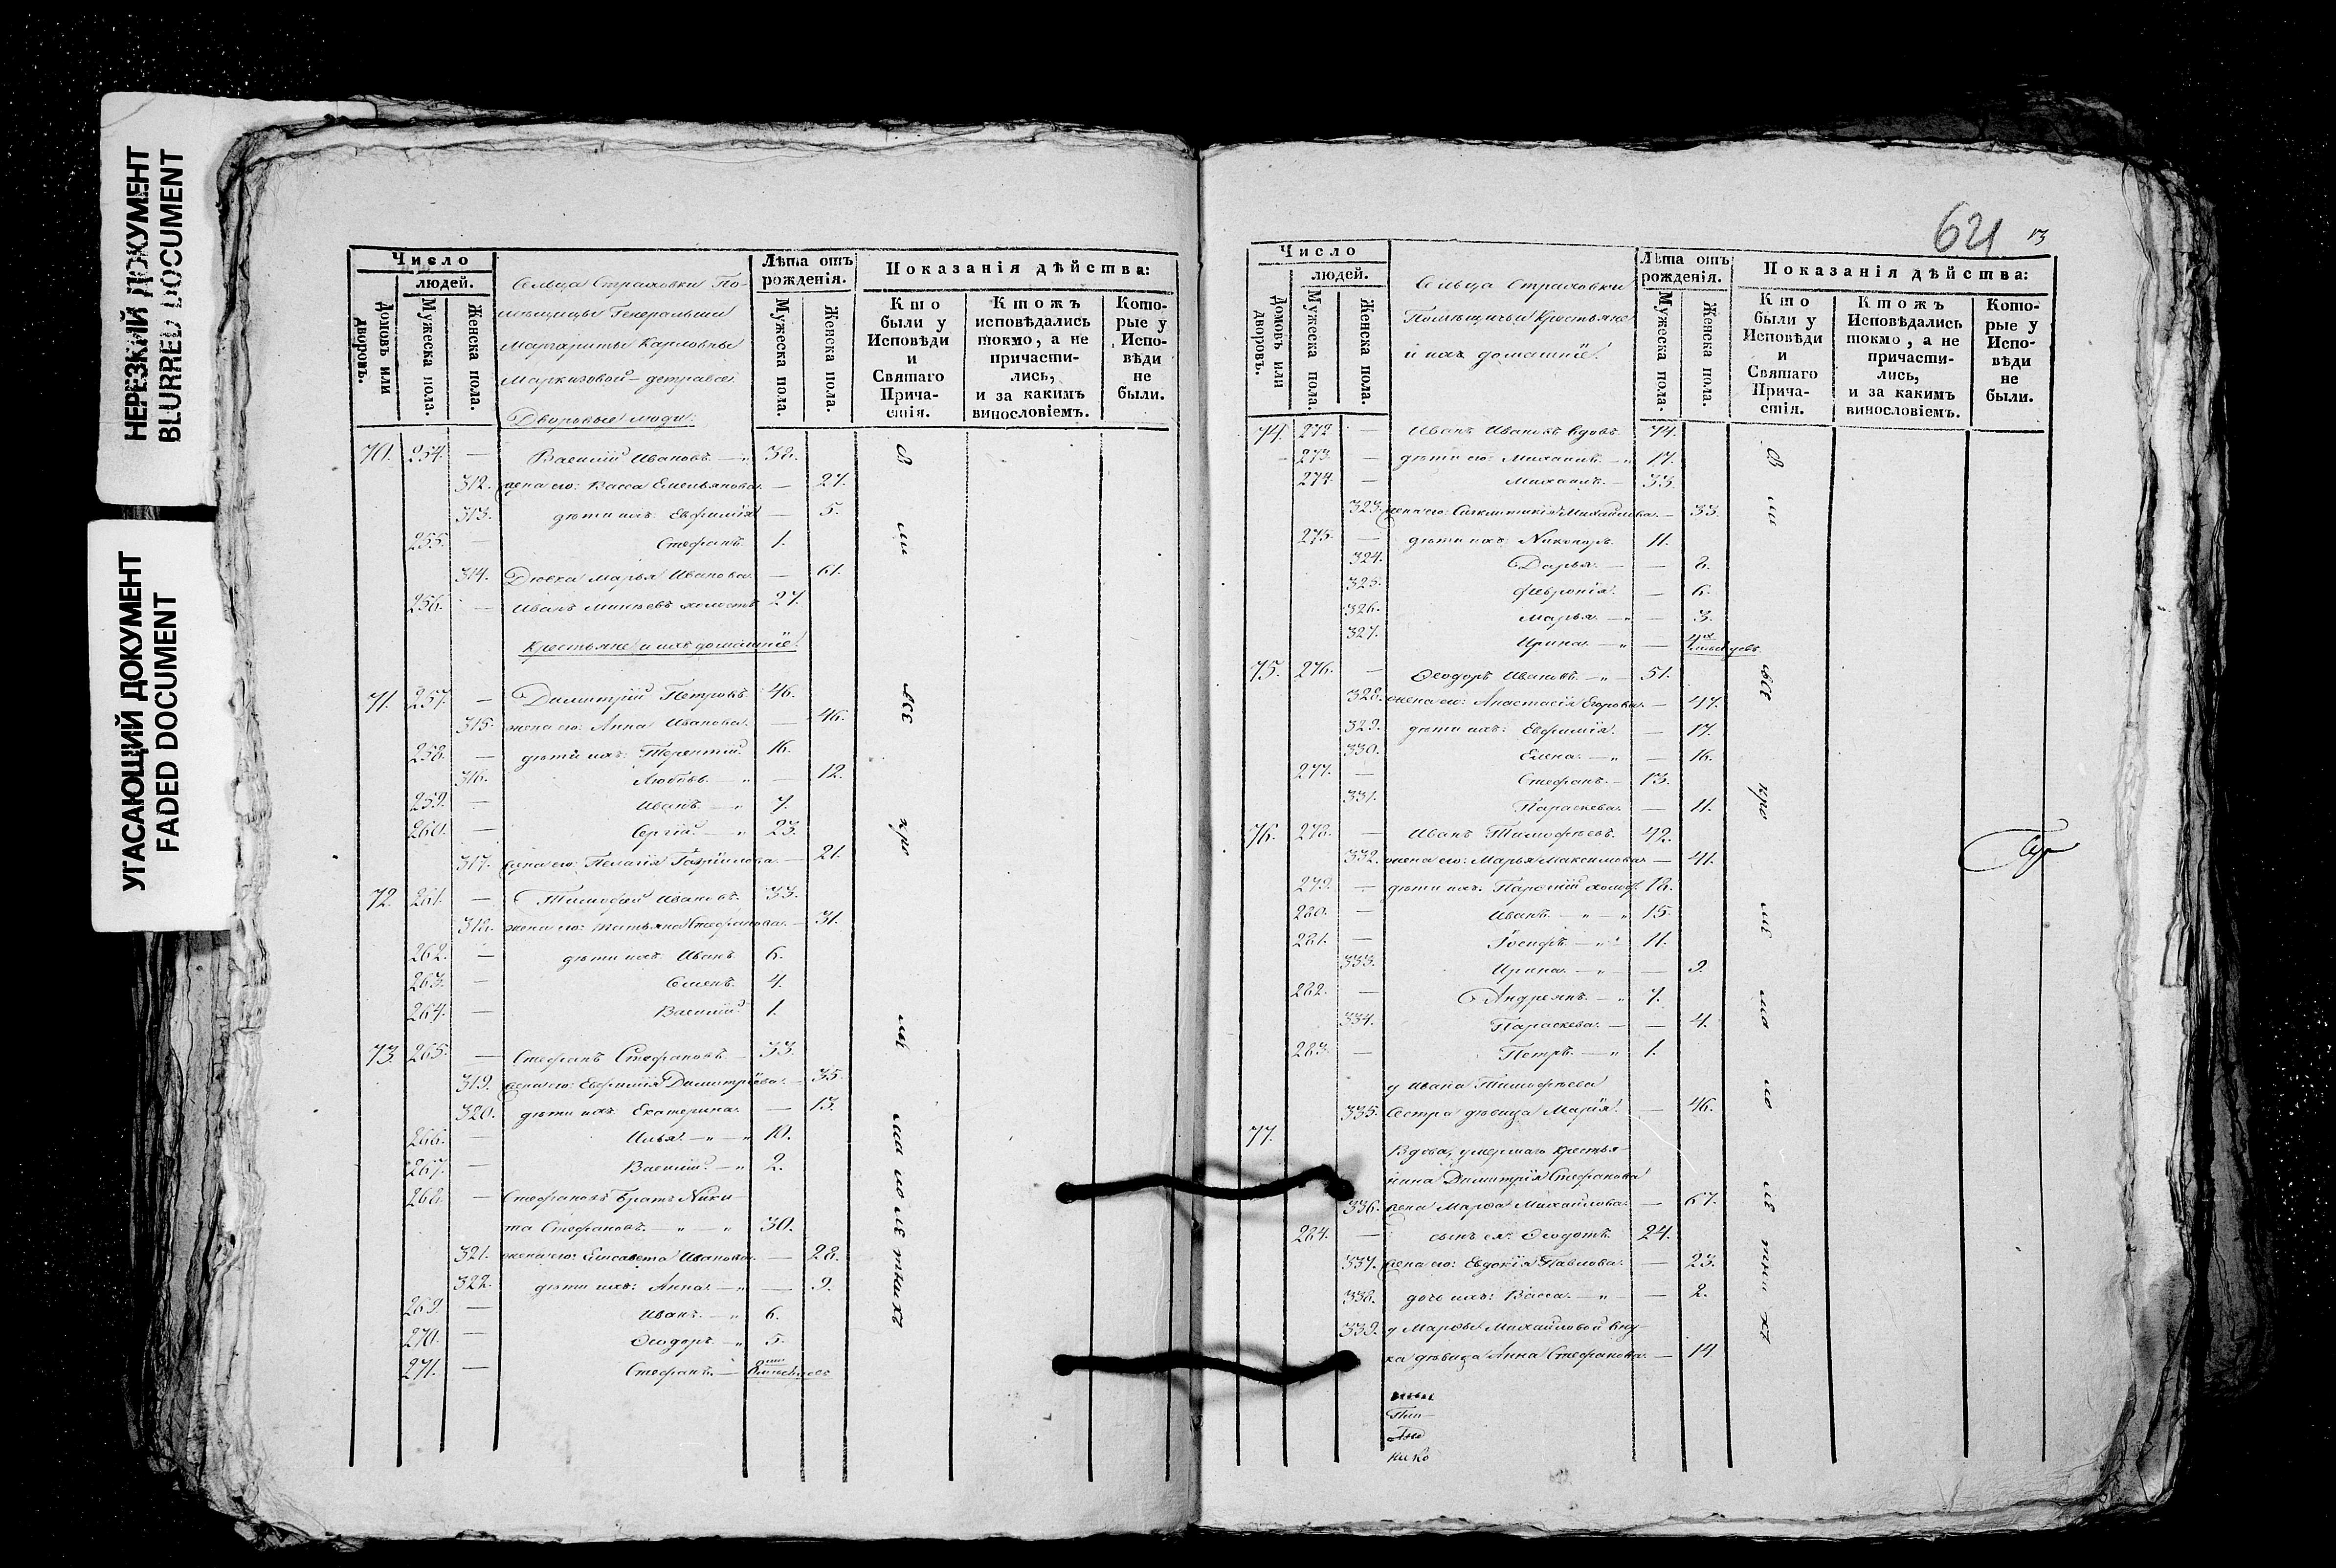 НЕРЕЗКИЙ ДОКУМЕНТ
BLURRED DOCUMENT
УГАСАЮЩИЙ ДОКУМЕНТ
FADED DOCUMENT
Число
людей.
Домовъ или дворовъ.
Мужеска пола.
Женска пола.
Сельца Страховки По-
мѣщицы Генеральши
Маргариты Карловны
Маркизовой-
Дворовые люди:
Лѣта отъ рожденія.
Мужеска пола.
Женска пола.
Показанія дѣйства:
Кто были у Исповѣди и Святаго Прича-стія.
Ктожъ исповѣдались токмо, а не причасти-лись, и за какимъ винословіемъ.
Кото-рые у Испо-вѣди не были.
70. 254. — Василій Ивановъ. — 38.
312. жена его: Васса Емельянова. — 27.
313. дѣти ихъ: Евфимія — 5.
255. — Стефанъ 1.
314. Марья Иванова. — 61.
256. — Иванъ Минѣевъ холостъ 27.
Крестьяне и ихъ домашніе.
71. 257. — Димитрій Петровъ 46.
315. жена его: Анна Иванова. — 46.
258. — дѣти ихъ: Терентій. 16.
316. Любовь. — „ — 12.
259. — Иванъ. — „ 7.
260. — Сергій. — „ 23.
317. жена его: Пелагія Гавріилова. — 21.
72. 261. — Тимофей Ивановъ. 33.
318. жена его: Татьяна Стефанова. — 31.
262. — дѣти ихъ: Иванъ 6.
263. — Семенъ. 4.
264. — Василій. 1.
73 265. — Стефанъ Стефановъ. — 33.
319. жена его: Евфимія Димитріева. — 35.
320. дѣти ихъ: Екатерина. — 13.
266. — Илья. — „ — „ 10.
267. — Василій. — „ 2.
268. — Стефановъ братъ Ники
та Стефановъ. — „ — „ 30.
321. жена его: Елисавета Иванова. — 28.
322. дѣти ихъ: Анна. — „ — 9.
269. — Иванъ. — „ 6.
270. — Ѳеодоръ. — „ 5.
271. — Стефанъ. — 8 мѣсяцевъ
В
ми
всѣ
кро
мѣ
ма ло лѣ тнихъ
621 13
Число
людей.
Домовъ или дворовъ.
Мужеска пола.
Женска пола.
Сельца Страховки
Помѣщичьи Крестьяне
и ихъ домашніе.
Лѣта отъ рожденія.
Мужеска пола.
Женска пола.
Показанія дѣйства:
Кто были у Исповѣди и Святаго Прича-стія.
Ктожъ Исповѣдались токмо, а не причасти-лись, и за какимъ винословіемъ.
Кото-рые у Испо-вѣди не были.
74. 272 — Иванъ Ивановъ вдовъ. 74.
273. — дѣти его: Михаилъ. — „ 17.
274. — Михаилъ. — 33.
323. жена его: Синклитикія Михайлова. — 33.
275. — дѣти ихъ: Никоноръ. 11.
324. Дарья. — — 8.
325. Февронія. — 6.
326. Марья. — „ — 3.
327. Ирина. — „ — 4 мѣсяцевъ.
75. 276. — Ѳеодоръ Ивановъ. — „ — 51.
328. жена его: Анастасія Егорова. — 47.
329. дѣти ихъ: Евфимія. — 17.
330. Елена. — „ — 16.
277. — Стефанъ. — 13.
331. Параскева. — 11.
76. 278. — Иванъ Тимофѣевъ. 42.
332. жена его: Марья Максимова — 41.
279. — дѣти ихъ: холос. 18.
280. — Иванъ. — „ — „ 15.
281. — Іосифъ. — „ — 11.
333. Ирина. — „ — 9.
282. — Андреянъ. — „ 7.
334. Параскева. — — 4.
283. — Петръ. — „ 1.
у Ивана Тимофѣева
335. Сестра дѣвица Марія. — 46.
77. Вдова, умершаго крестья-
нина Димитрія Стефанова
336. жена Марѳа Михайлова. — 67.
284. — сынъ ея: Ѳеодотъ. 24.
337. жена его: Евдокія Павлова. — 23.
338. дочь ихъ: Васса. — „ — 2.
339. у Марѳы Михайловой вну-
ка дѣвица Анна Стефанова. — 14
В
ми
всѣ
кро
мѣ
ма
ло
лѣ
тни
хъ